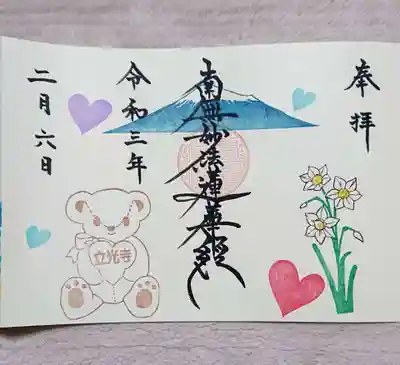 奉拝
南無妙法蓮華経
令和三年
二月六日
立光寺